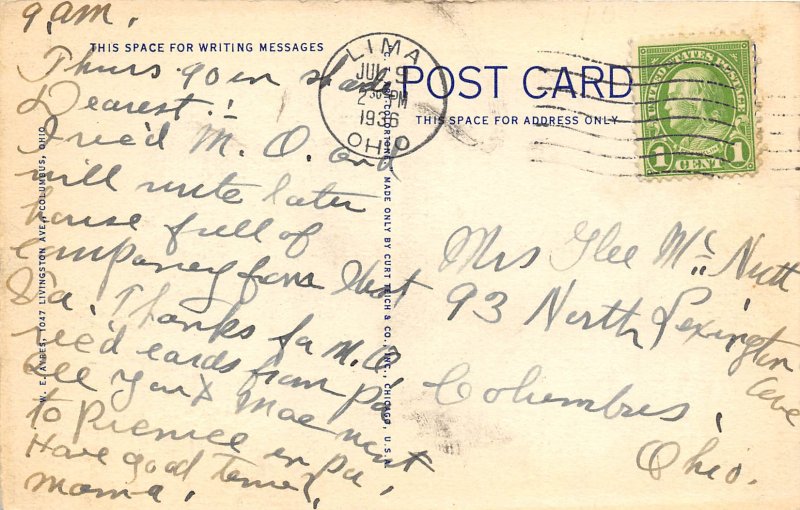 9 a.m.
THIS SPACE FOR WRITING MESSAGES
Thurs 90 in shade
Dearest!
I rec'd M. O. and
will write later
house full of
company from West
Va. Thanks for M.O.
rec'd cards from Pa
See you & Mae went
to Picnic in Pa,
Have good time,
Mama,
W. E. AYRES, 1047 LIVINGSTON AVE., COLUMBUS, OHIO
MADE ONLY BY CURT TEICH & CO., INC., CHICAGO, U.S.A.
LIMA
JUL 9
2 30 PM
1936
OHIO
POST CARD
THIS SPACE FOR ADDRESS ONLY
UNITED STATES POSTAGE
1 CENT 1
Mrs Glee McNutt
93 North Lexington
Ave
Columbus,
Ohio.